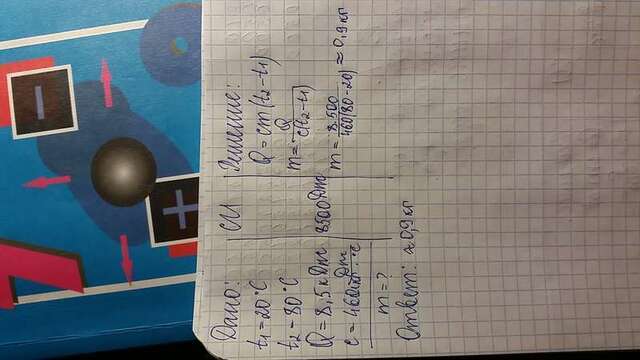 Дано:
t₁ = 20°C
t₂ = 80°C
Q = 8,5 кДж
c = 460 Дж/кг·°C
m = ?
СИ
8500 Дж
Решение:
Q = cm(t₂-t₁)
m = Q/c(t₂-t₁)
m = 8.500/460(80-20) ≈ 0,9 кг
Ответ: ≈ 0,9 кг
7